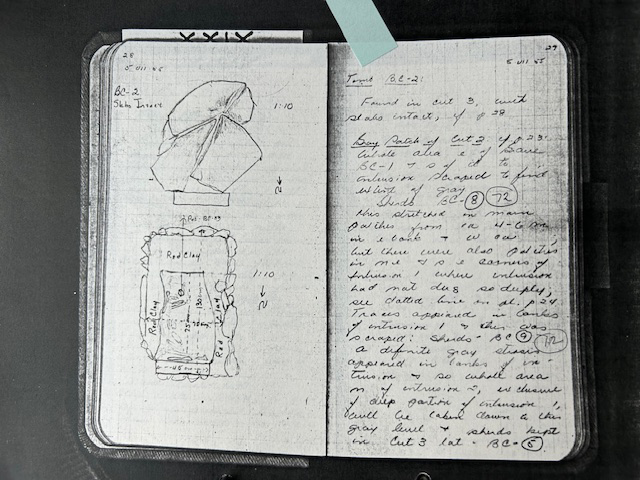 XXIX
28
5 VII 55
BC-2
Slabs Intact
1:10
Red Clay
1:10
Red Clay
Red Clay
29
5 VII 55
Tomb BC-2:
Found in cut 3, with
slabs intact, cf p 28
Gray Patch of Cut 2 cf p 23:
Whole area e of Grave
BC-1 & s of it to
intrusion scraped to find
extent of gray
Sherds BC- 8 72
This stretched in main
patches from ca 4-6 cm
in e bank & w
but there were also patches
in n e & s e corners of
Intrusion 1 where intrusion
had not dug so deeply,
see dotted line on pl. p 24
Traces appeared in banks
of intrusion 1 & this was
scraped: Sherds - BC 9 72
A definite gray
appeared in banks of in-
trusion & so whole area
n of intrusion exclusive
of deep portion of intrusion 1,
will be taken down to this
gray level & sherds kept
in Cut 3 lot - BC- 5